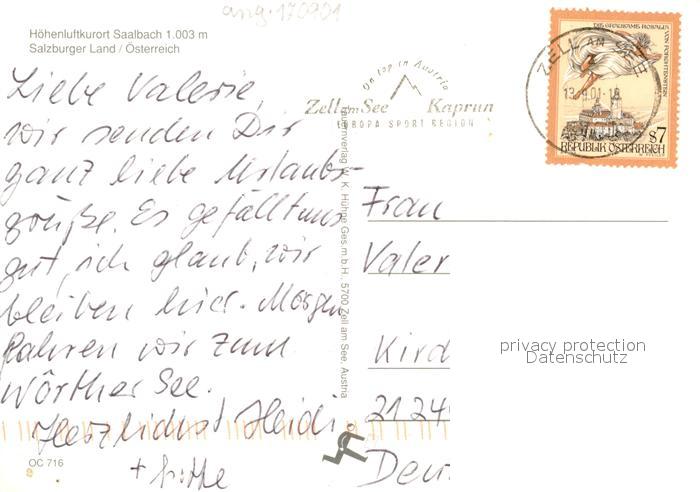 ang. 170901
Höhenluftkurort Saalbach 1.003 m
Salzburger Land / Österreich
Liebe Valerie,
wir senden Dir
ganz liebe Urlaubs-
grüße. Es gefällt uns
gut, ich glaub, wir
bleiben hier. Morgen
fahren wir zum
Wörther See.
Herzlichst Heidi
+
OC 716
On top in Austria
Zell am See Kaprun
EUROPA SPORT REGION
K. Hühne Ges.m.b.H., 5700 Zell am See, Austria
ZELL AM SEE
13.9.01-18
DIE GRAUSAME ROSALIA VON FORCHTENSTEIN
S7
REPUBLIK ÖSTERREICH
Frau
Valer
Kird
2124
Deu
privacy protection
Datenschutz